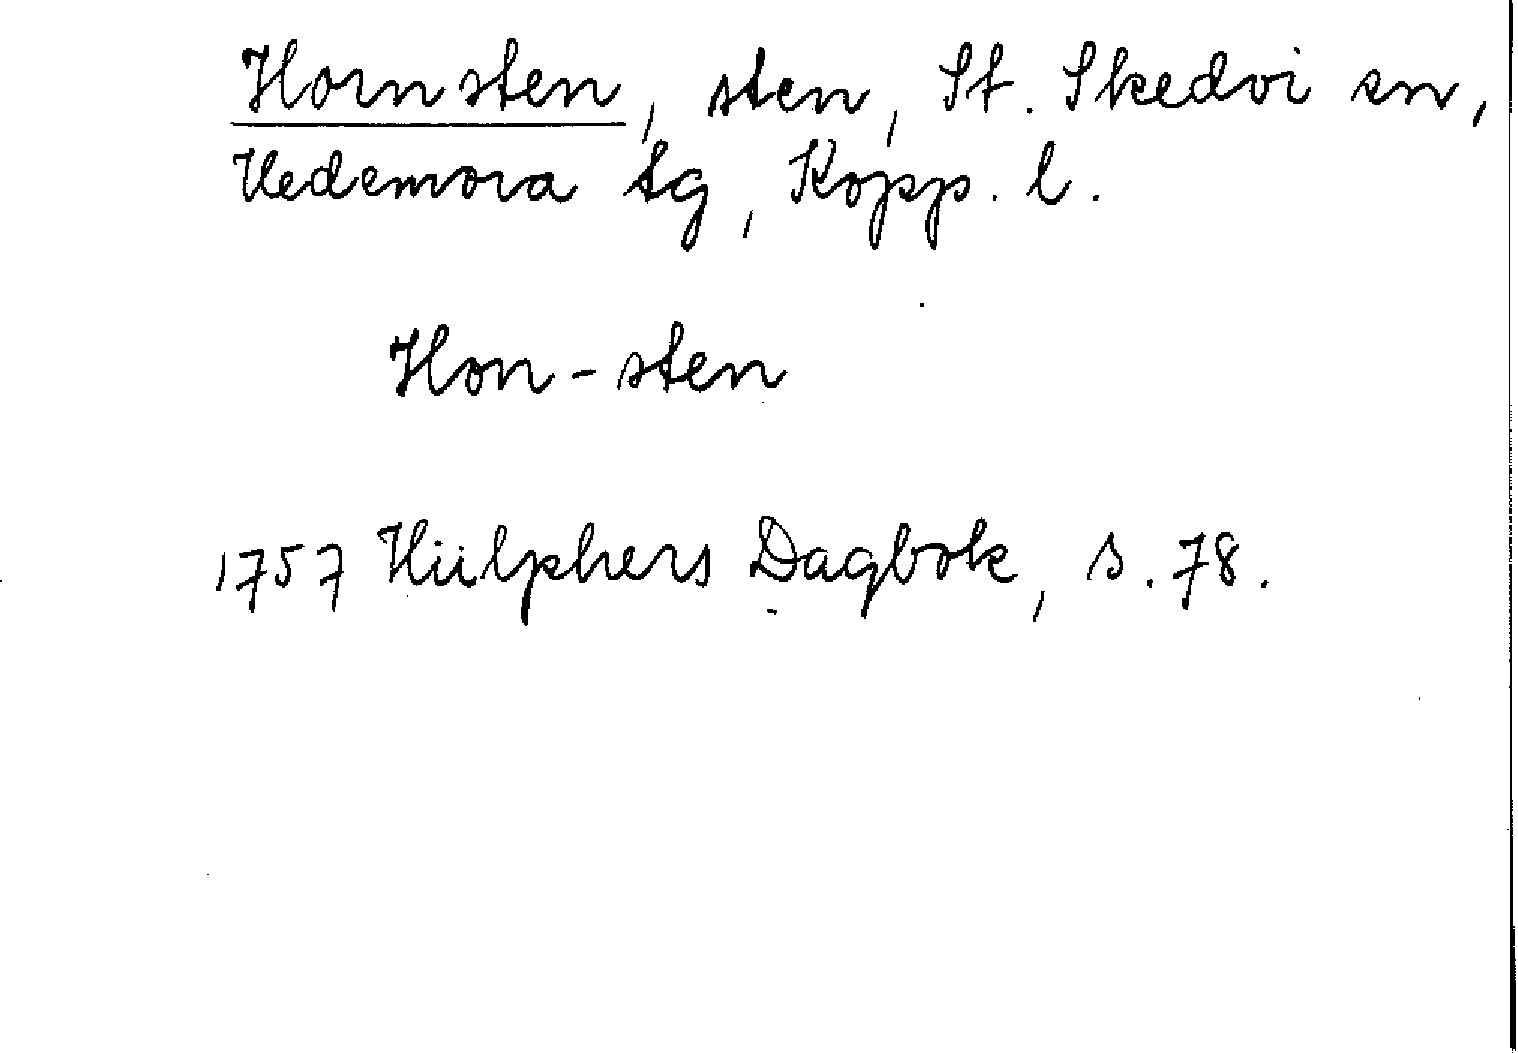 Hornsten, sten, St. Skedvi sn,
Hedemora tg, Kopp. l.
Hon-sten
1757 Hülphers Dagbok, s. 78.